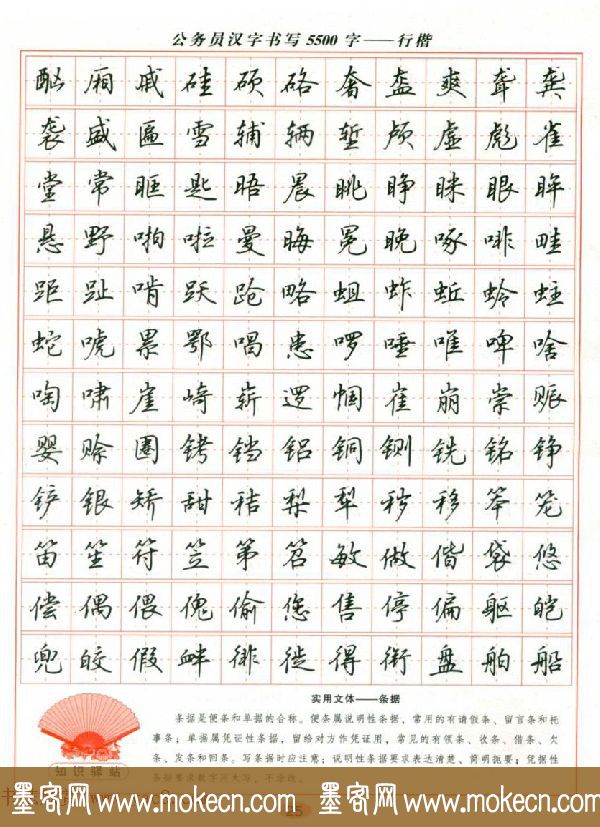 公务员汉字书写5500字——行楷
酗厢戚硅硕硌奢盔爽聋龚
袭盛匾雪辅辆堑颅虚彪雀
堂常眶匙晤晨眺睁眯眼眸
悬野啪啦曼晦冕晚啄啡畦
距趾啃跃跄略蛆蚱蚯蛉蛀
蛇唬累鄂唱患啰唾唯啤啥
啕啸崖崎崭逻帼崔崩崇赈
婴赊圈铐铛铝铜铡铣铭铮
铲银矫甜秸梨犁秽移笨笼
笛笙符笠第笤敏做偕袋悠
偿偶偎傀偷您售停偏躯皑
兜皎假衅徘徙得衔盘舶船
实用文体——条据
条据是便条和单据的合称。便条属说明性条据，常用的有请假条、留言条和托
事条；单据属凭证性条据，留给对方作凭证用，常见的有领条、收条、借条、欠
条、发条和回条。写条据时应注意：说明性条据要求表达清楚、简明扼要；凭据性
条据要求数字用大写，不涂改。
知识驿站
25
墨客网 www.mokecn.com 墨客网 www.mokecn.com